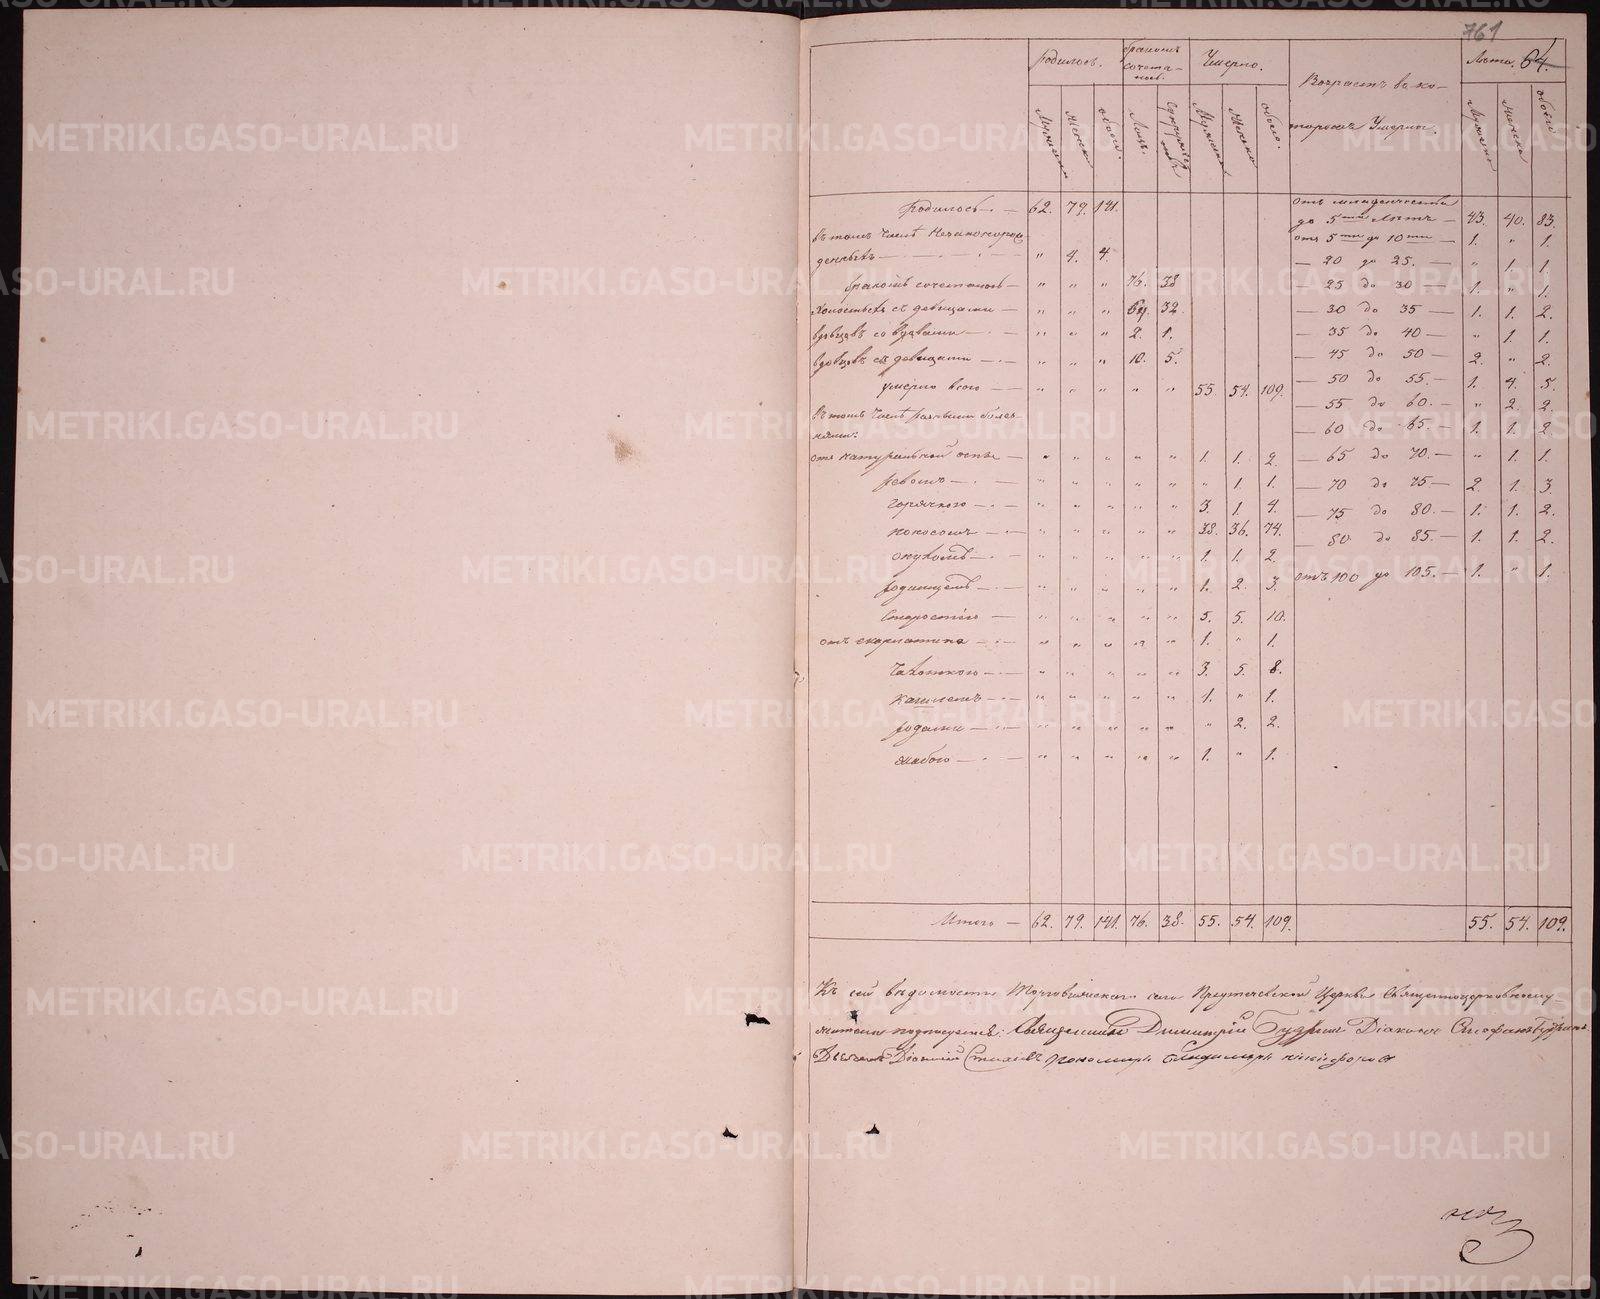 761
Родилось. Бракомъ сочета- лось. Умерло. Возрастъ въ ко- торомъ Умерли. Лѣта. 64.
Мужеска Женска обоего. Лицъ. Супружествъ Мужеска Женска обоего. Мужеска Женска обоего
Родилось — 62. 79. 141.
въ томъ числѣ незаконорож
денныхъ — " 4. 4.
бракомъ сочеталось — " " " 76. 38
Холостыхъ съ девицами — " " " 64. 32.
вдовцовъ со вдовами — " " " 2. 1.
вдовцовъ съ девицами — " " " 10. 5.
умерло всего — " " " " " 55. 54. 109.
въ томъ числѣ разными болез-
нями:
отъ натуральной оспы — " " " " " 1. 1. 2.
ревомъ — " " " " " " 1. 1.
горячкою — " " " " " 3. 1. 4.
поносомъ — " " " " " 38. 36. 74.
опухолью — " " " " " 1. 1. 2.
родимцемъ — " " " " " 1. 2. 3.
Старостію — " " " " " 5. 5. 10.
отъ скарлатина — " " " " " 1. " 1.
Чахоткою — " " " " " 3. 5. 8.
Кашлемъ — " " " " " 1. " 1.
родами — " " " " " " 2. 2.
жабою — " " " " " 1. " 1.
отъ младенчества
до 5ти Лѣтъ — 43. 40. 83.
отъ 5ти до 10ти — 1. " 1.
— 20 до 25. — " 1. 1.
— 25 до 30 — 1. " 1.
— 30 до 35 — 1. 1. 2.
— 35 до 40 — " 1. 1.
— 45 до 50 — 2. " 2.
— 50 до 55. — 1. 4. 5.
— 55 до 60. — " 2. 2.
— 60 до 65. — 1. 1. 2.
— 65 до 70. — " 1. 1.
— 70 до 75 — 2. 1. 3.
— 75 до 80. — 1. 1. 2.
— 80 до 85. — 1. 1. 2.
отъ 100 до 105. — 1. " 1.
Итого — 62. 79. 141. 76. 38. 55. 54. 109. 55. 54. 109.
Къ сей вѣдомости Торговижскаго села Предтечевской Церкви Священноцерковнослу-
жители подписуемся: Священникъ Димитрій Будринъ Діаконъ Стефанъ Будринъ
Діонисій Стахіевъ пономарь Владимиръ Никифоровъ